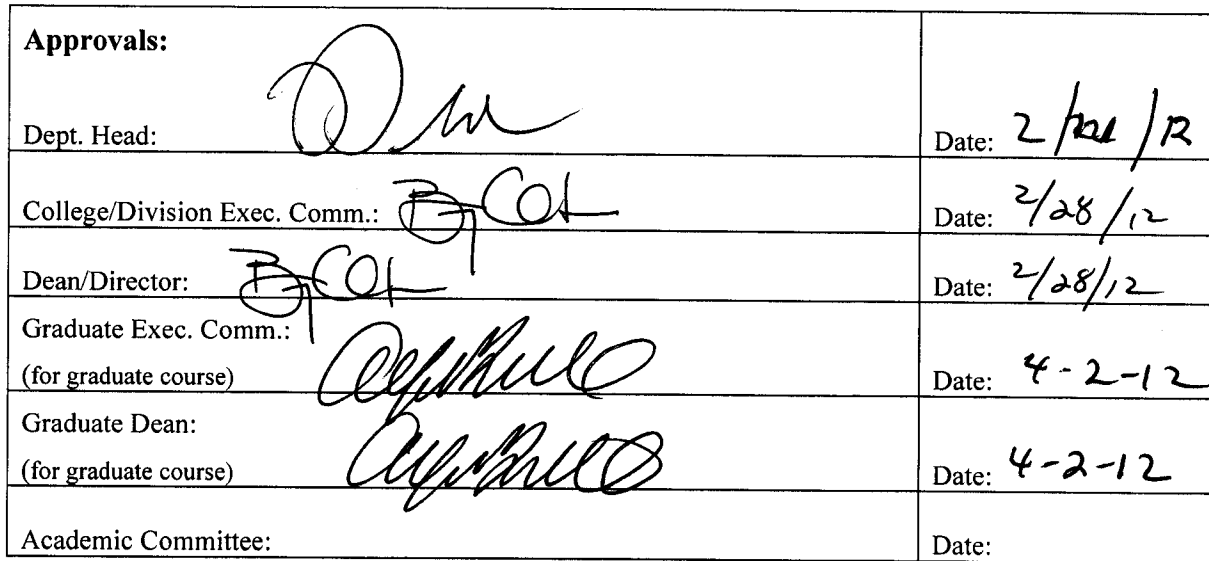 Approvals:
Dept. Head:
Date: 2/ /12
College/Division Exec. Comm.:
Date: 2/28/12
Dean/Director:
Date: 2/28/12
Graduate Exec. Comm.:
(for graduate course)
Date: 4-2-12
Graduate Dean:
(for graduate course)
Date: 4-2-12
Academic Committee:
Date: